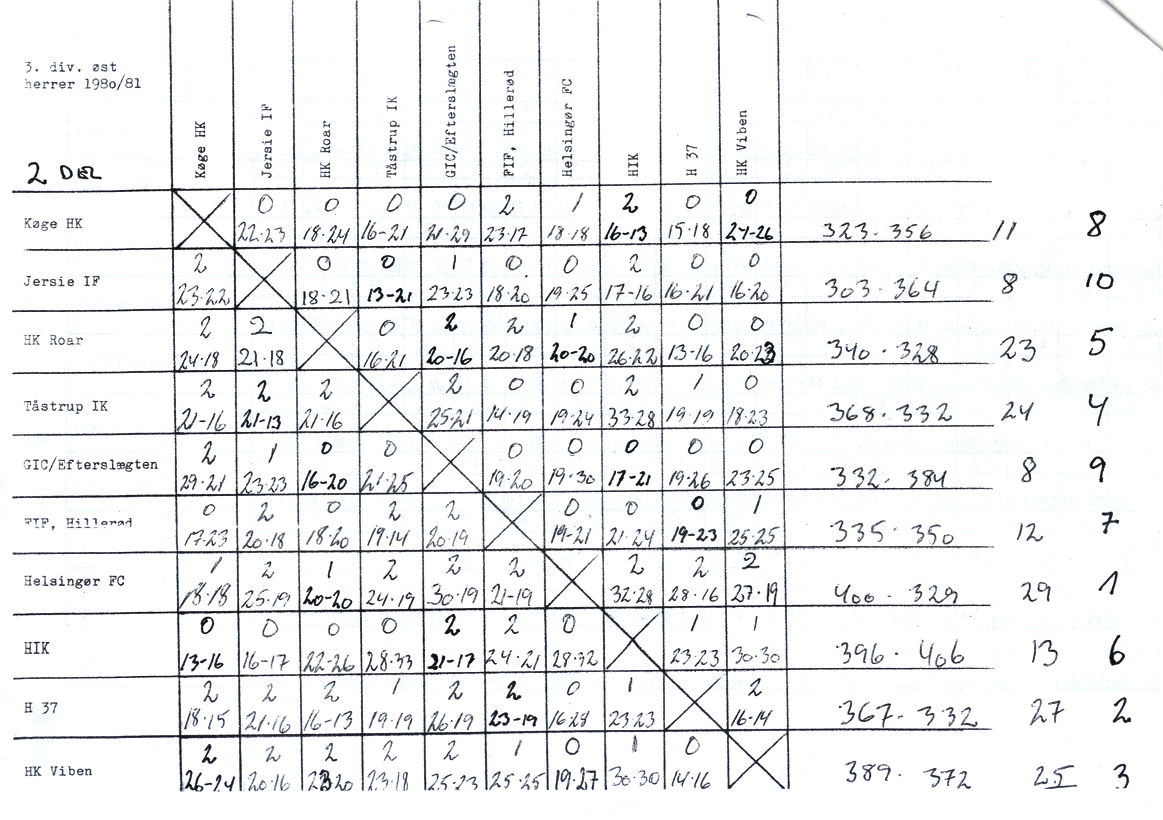 3. div. øst
herrer 1980/81
2 DEL
Køge HK Jersie IF HK Roar Tåstrup IK GIC/Efterslægten FIF, Hillerød Helsingør FC HIK H 37 HK Viben
0 0 0 0 2 1 2 0 0
Køge HK 22-23 18-24 16-21 21-29 23-17 18-18 16-13 15-18 24-26 323-356 11 8
2 0 0 1 0 0 2 0 0
Jersie IF 23-22 18-21 13-21 23-23 18-20 19-25 17-16 16-21 16-20 303-364 8 10
2 2 0 2 2 1 2 0 0
HK Roar 24-18 21-18 16-21 20-16 20-18 20-20 26-22 13-16 20-23 340-328 23 5
2 2 2 2 0 0 2 1 0
Tåstrup IK 21-16 21-13 21-16 25-21 14-19 19-24 33-28 19-19 18-23 368-332 24 4
2 1 0 0 0 0 0 0 0
GIC/Efterslægten 29-21 23-23 16-20 21-25 19-20 19-30 17-21 19-26 23-25 332-384 8 9
0 2 0 2 2 0 0 0 1
FIF, Hillerød 17-23 20-18 18-20 19-14 20-19 19-21 21-24 19-23 25-25 335-350 12 7
1 2 1 2 2 2 2 2 2
Helsingør FC 18-18 25-19 20-20 24-19 30-19 21-19 32-28 28-16 27-19 400-329 29 1
0 0 0 0 2 2 0 1 1
HIK 13-16 16-17 22-26 28-33 21-17 24-21 28-32 23-23 30-30 396-406 13 6
2 2 2 1 2 2 0 1 2
H 37 18-15 21-16 16-13 19-19 26-19 23-19 16-28 23-23 16-14 367-332 27 2
2 2 2 2 2 1 0 1 0
HK Viben 26-24 20-16 23-20 23-18 25-23 25-25 19-27 30-30 14-16 389-372 25 3